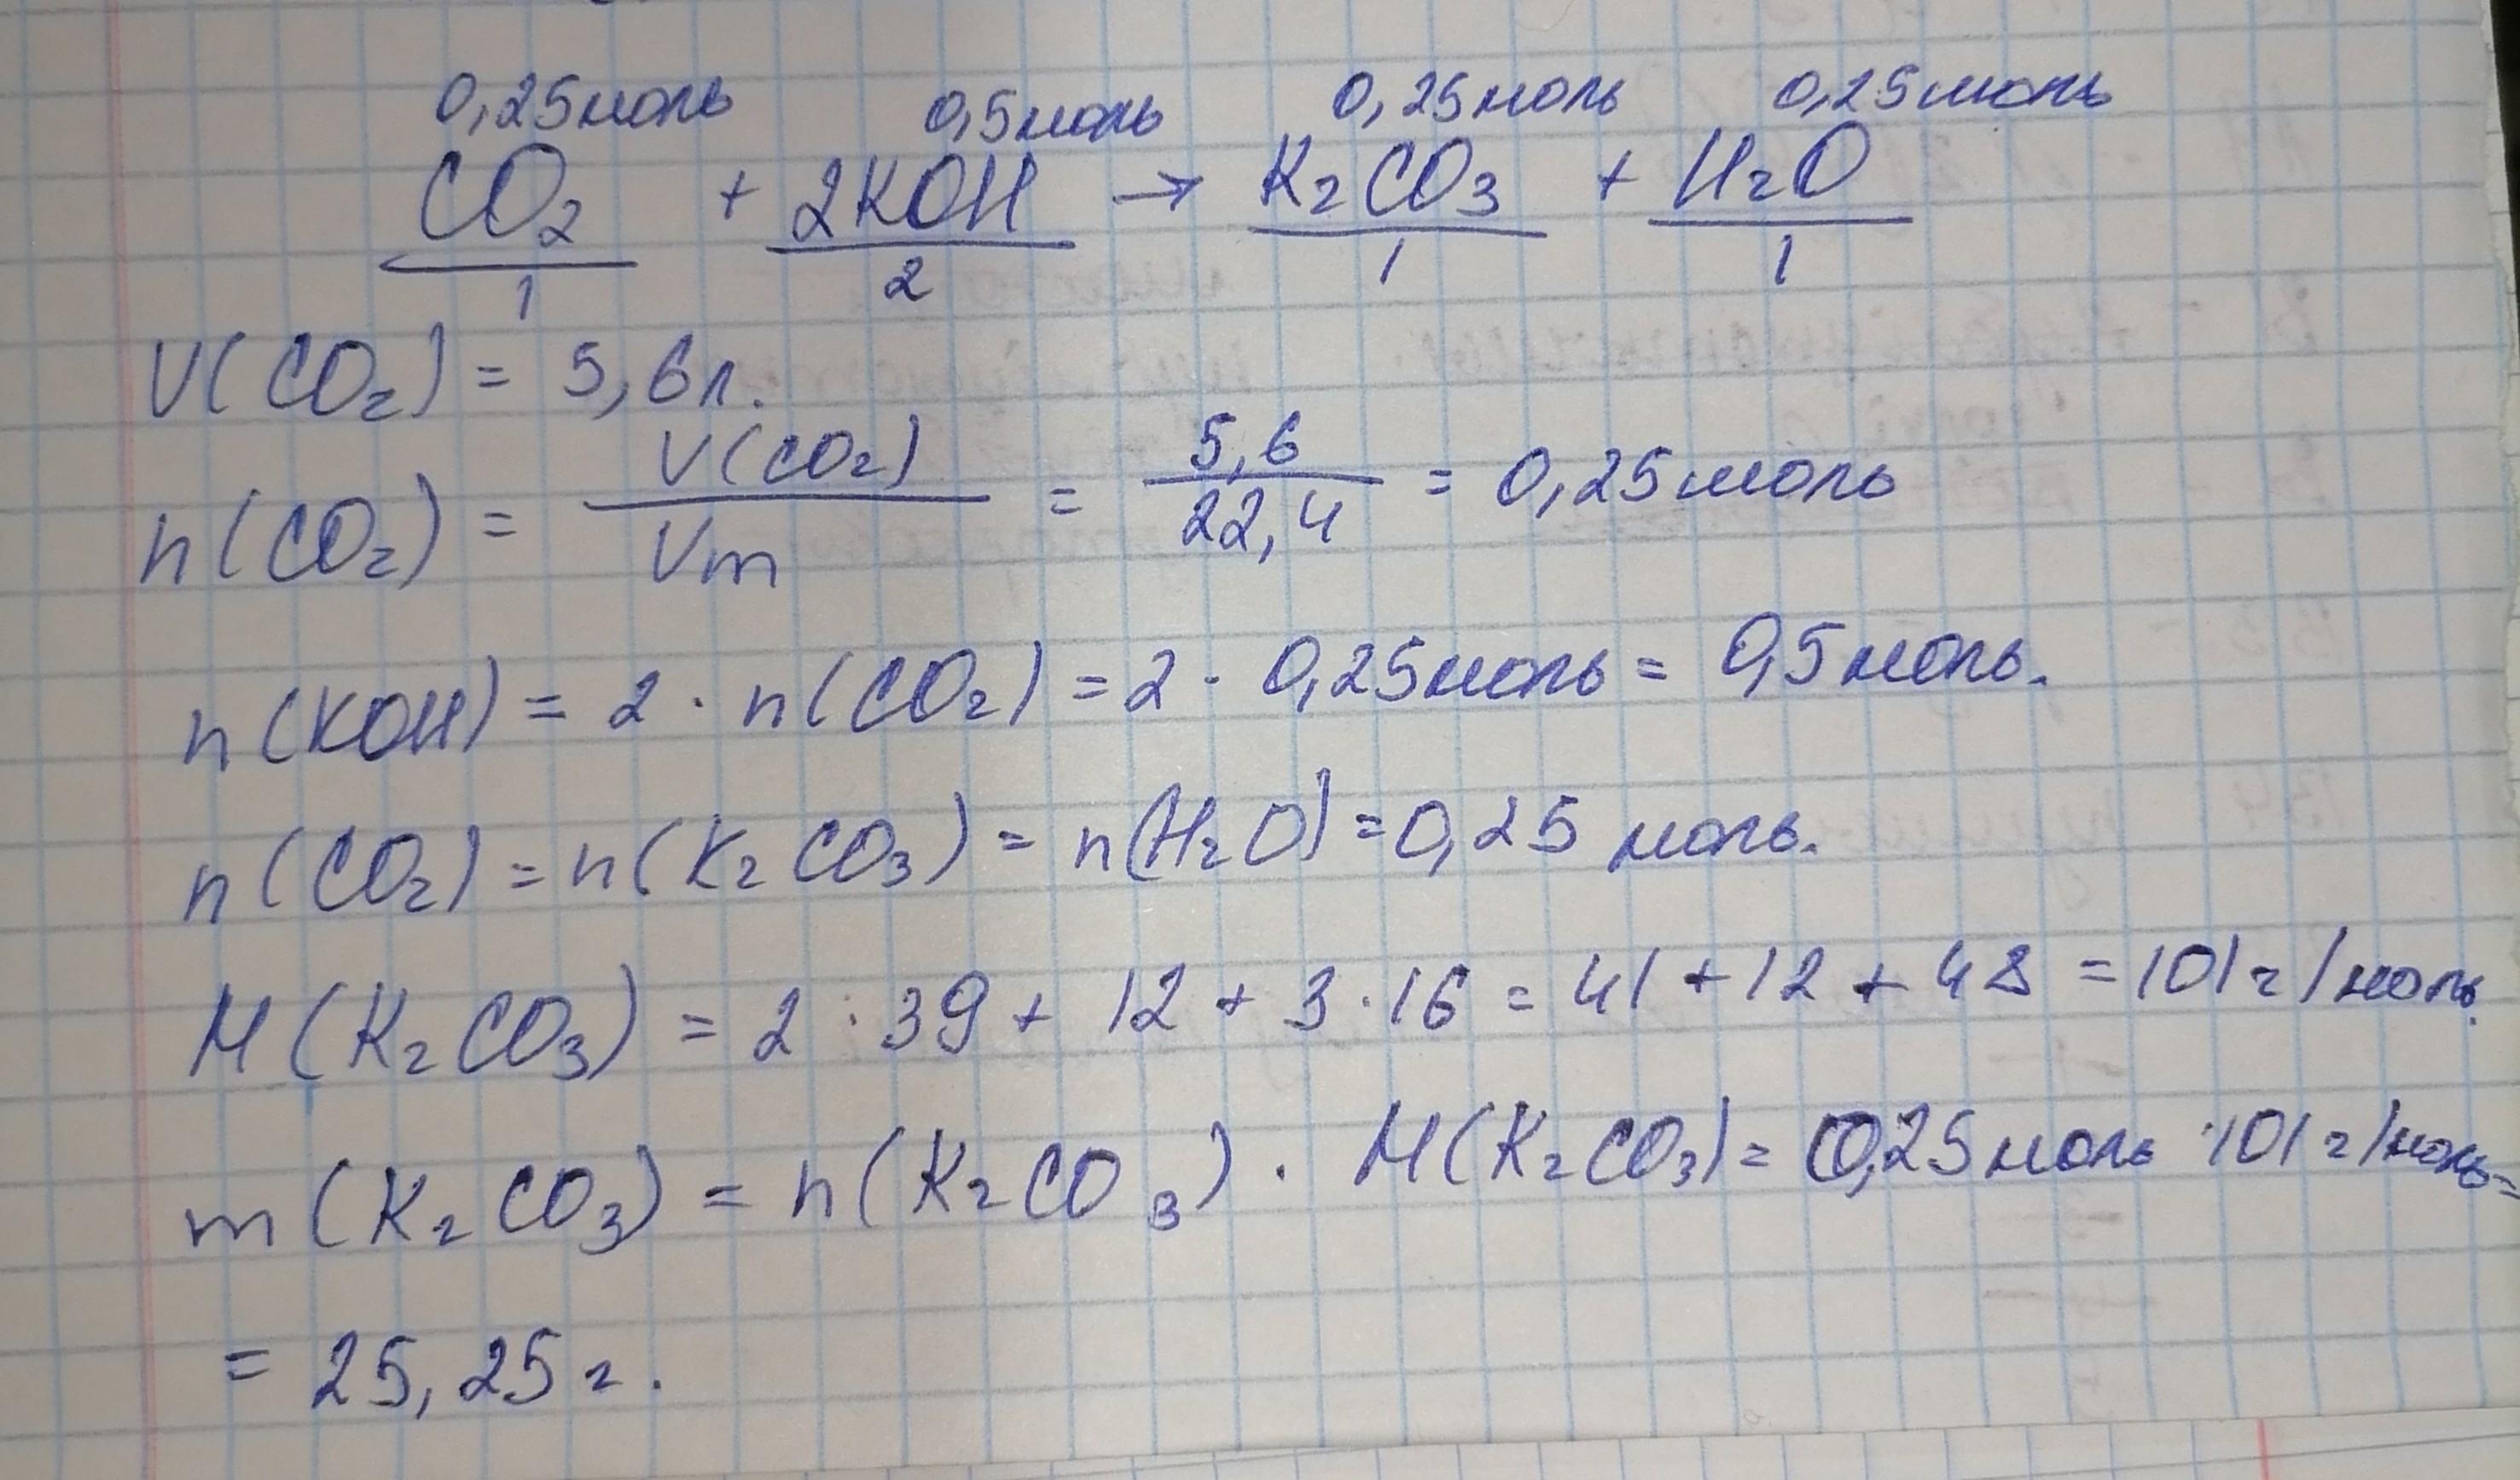 0,25моль 0,5моль 0,25моль 0,25моль
CO₂ + 2KOH → K₂CO₃ + H₂O
1 2 1 1
V(CO₂) = 5,6л.
n(CO₂) = V(CO₂) / Vm = 5,6 / 22,4 = 0,25моль
n(KOH) = 2 · n(CO₂) = 2 · 0,25моль = 0,5моль.
n(CO₂) = n(K₂CO₃) = n(H₂O) = 0,25 моль.
M(K₂CO₃) = 2 · 39 + 12 + 3 · 16 = 41 + 12 + 48 = 101г/моль.
m(K₂CO₃) = n(K₂CO₃) · M(K₂CO₃) = 0,25моль · 101г/моль =
= 25,25г.